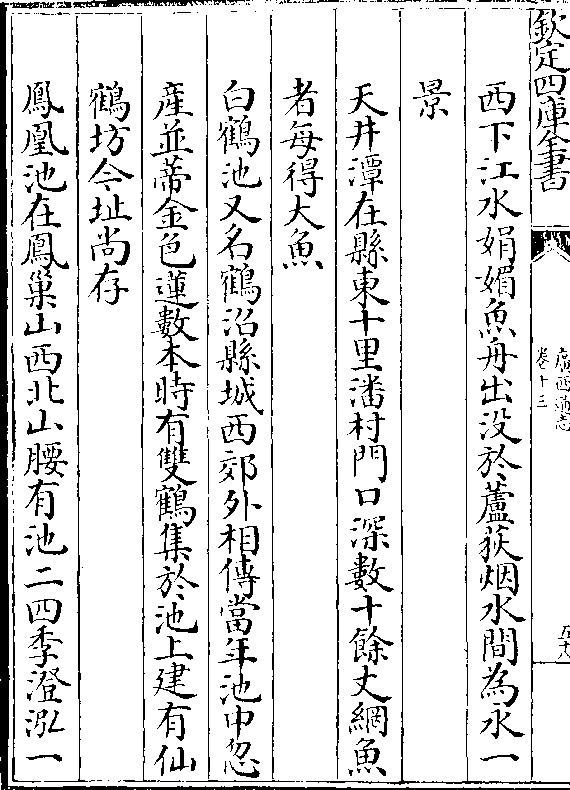 欽定四庫全書
廣西通志
卷十三
五十八
西下江水娟媚魚舟出没於蘆荻烟水間為永一
景
天井潭在縣東十里潘村門口深數十餘丈網魚
者每得大魚
白鶴池又名鶴沼縣城西郊外相傳當年池中忽
産並蒂金色蓮數本時有雙鶴集於池上建有仙
鶴坊今址尚存
鳳凰池在鳳巢山西北山腰有池二四季澄泓一